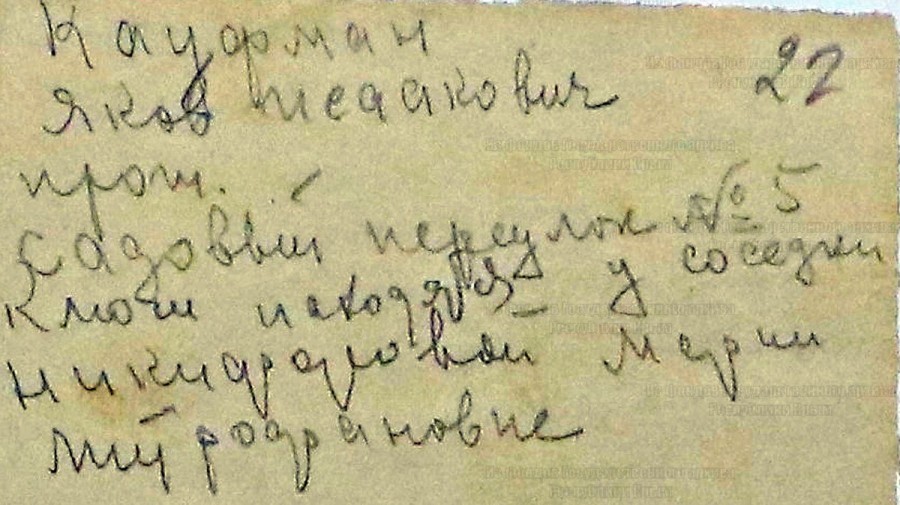 Кауфман
Яков Исаакович 22
прож.
Садовый переулок № 5
Ключи находятся у соседки
Никифоровой Марии
Митрофановне